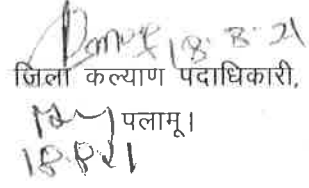 18.8.21
जिला कल्याण पदाधिकारी,
पलामू।
18.8.21